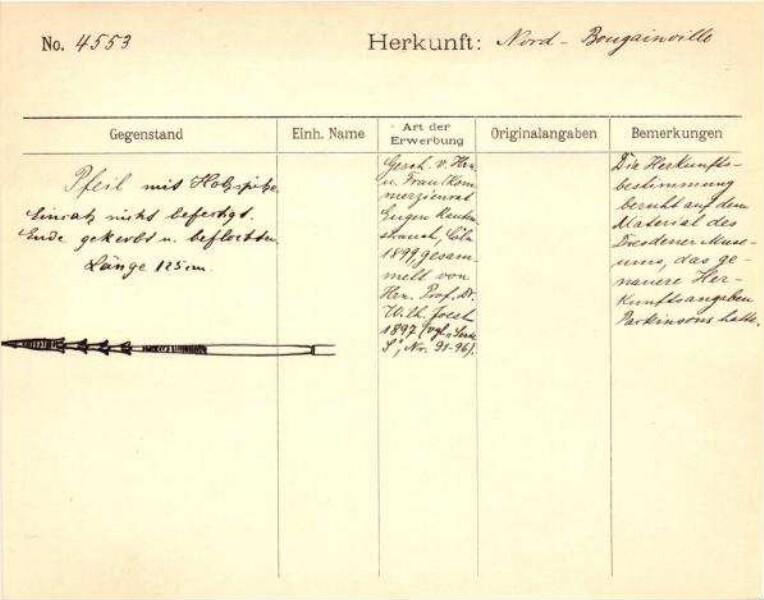 No. 4553
Herkunft: Nord-Bougainville
Gegenstand
Einh. Name
Art der
Erwerbung
Originalangaben
Bemerkungen
Pfeil mit Holzspitze.
Einsatz nicht befestigt.
Ende gekerbt u. beflochten.
Länge 125 cm.
Gesch. v. Hrn.
u. Frau Kom
merzienrat
Eugen Rauten
strauch, Cöln
1899, gesam-
melt von
Hrn. Prof. Dr.
Wilh. Joest
1897 (vgl.
S", Nr. 91-96).
Die Herkunfts-
bestimmung
beruht auf dem
Material des
Dresdener Muse-
ums, das ge-
nauere Her-
kunftsangaben
Parkinsons hatte.